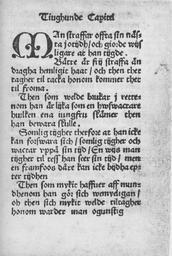 Tiughunde Capitel
MAn straffar offta sin näs-
ta j otijdh/och giorde wijs
ligare at han tijgde.
Bätre är frij straffa än
dragha hemligit haat/och then ther
tagher til tacka honom kommer thet
til froma.
Then som welde brukar j rettes
nom han är lijka som en hwszwactare
hwilken ena iungfru skämer then
han bewara skulle.
Somlig tijgher therfore at han icke
kan forswara sich/somlig tijgher och
wactar vppå sin tijd/En wijs man
tijgher til tess han seer sin tijd/men
en framfoos dåre kan icke bijdha epter
tijden
Then som mykit haffuer aff mun
dhenom han gör sich
och then sich mykit welde tiltagher
honom warder man ogunstig